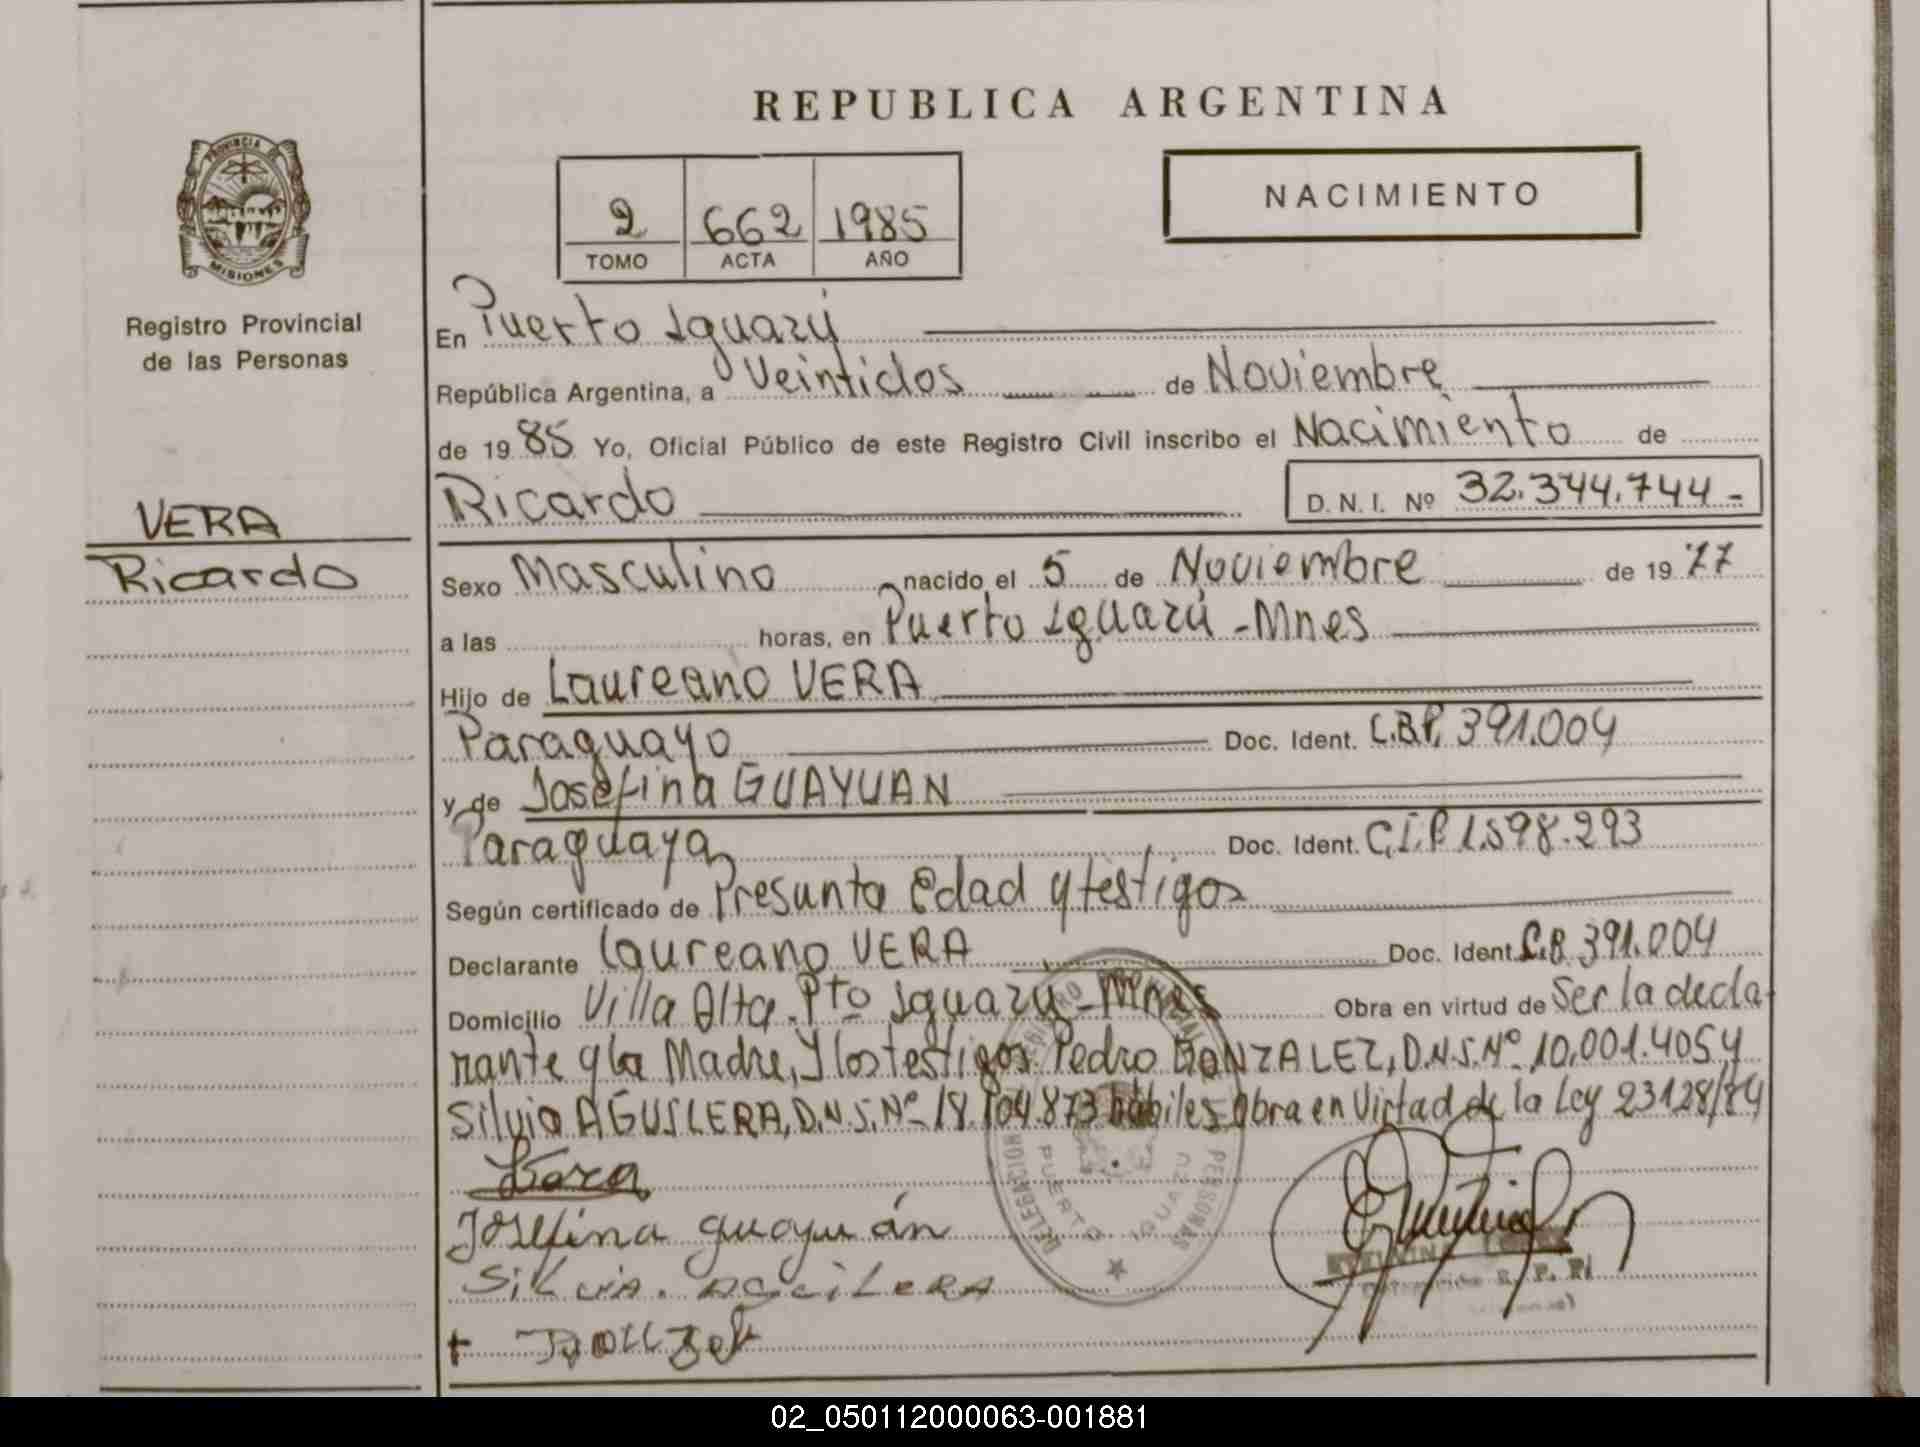 REPUBLICA ARGENTINA
PROVINCIA DE
MISIONES
Registro Provincial
de las Personas
2 662 1985
TOMO ACTA AÑO
NACIMIENTO
En Puerto Iguazú
República Argentina, a Veintidos de Noviembre
de 19 85 Yo, Oficial Público de este Registro Civil inscribo el Nacimiento de
Ricardo D.N.I. Nº 32.344.744-
VERA
Ricardo
Sexo Masculino nacido el 5 de Noviembre de 19 77
a las horas, en Puerto Iguazú - Mnes
Hijo de Laureano VERA
Paraguayo Doc. Ident. C.B.P. 391.004
y de Josefina GUAYUAN
Paraguaya Doc. Ident. C.I.P 1.598.293
Según certificado de Presunta Edad y testigos
Declarante Laureano VERA Doc. Ident. C.B. 391.004
Domicilio Villa Alta. Pto Iguazú - Mnes Obra en virtud de Ser la decla-
rante y la Madre, y los testigos Pedro GONZALEZ, D.N.I. Nº 10.001.4054
Silvia AGUILERA, D.N.I. Nº 18.104.873 habiles = Obra en Virtad de la Ley 23128/84
Josefina guayuán
SiLviA. AGuiLeRA
DELEGACION REGISTRO PROVINCIAL PERSONAS
PUERTO IGUAZU
R. P. P.
02_050112000063-001881